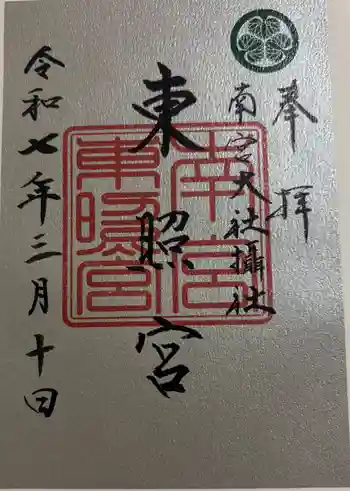 奉拝
南宮大社攝社
東照宮
令和七年三月十日
南宮
東照宮